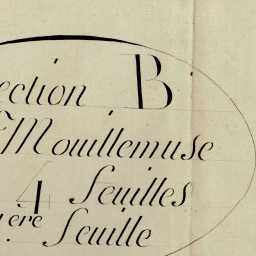 ection B
Mouillemuse
4 feuilles
ère feuille